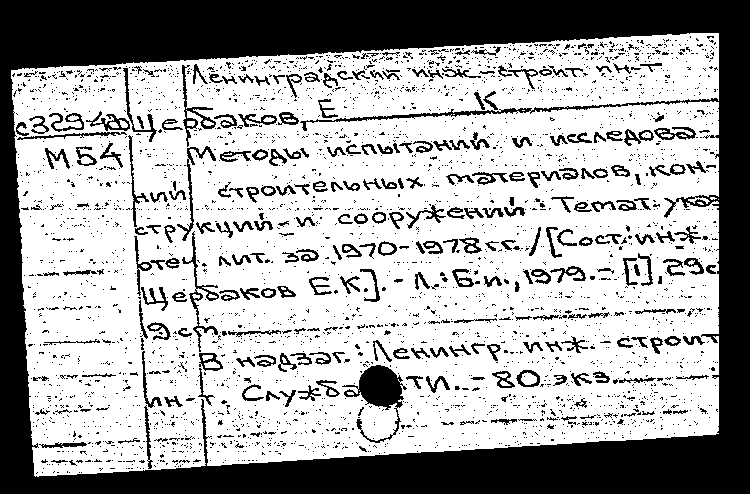 Ленинградский инж.-строит. ин-т
Щербаков, Е К
М54 Методы испытаний и исследова-
ний строительных материалов, кон-
струкций и сооружений: Темат. указ
отеч. лит. за 1970-1978 гг. /[Сост.: инж.
Щербаков Е.К]. - Л.: Б.и., 1979. - [1], 29с
19 cm.
В надзаг.: Ленингр. инж.-строит
ин-т. Служба ТИ. - 80 экз.